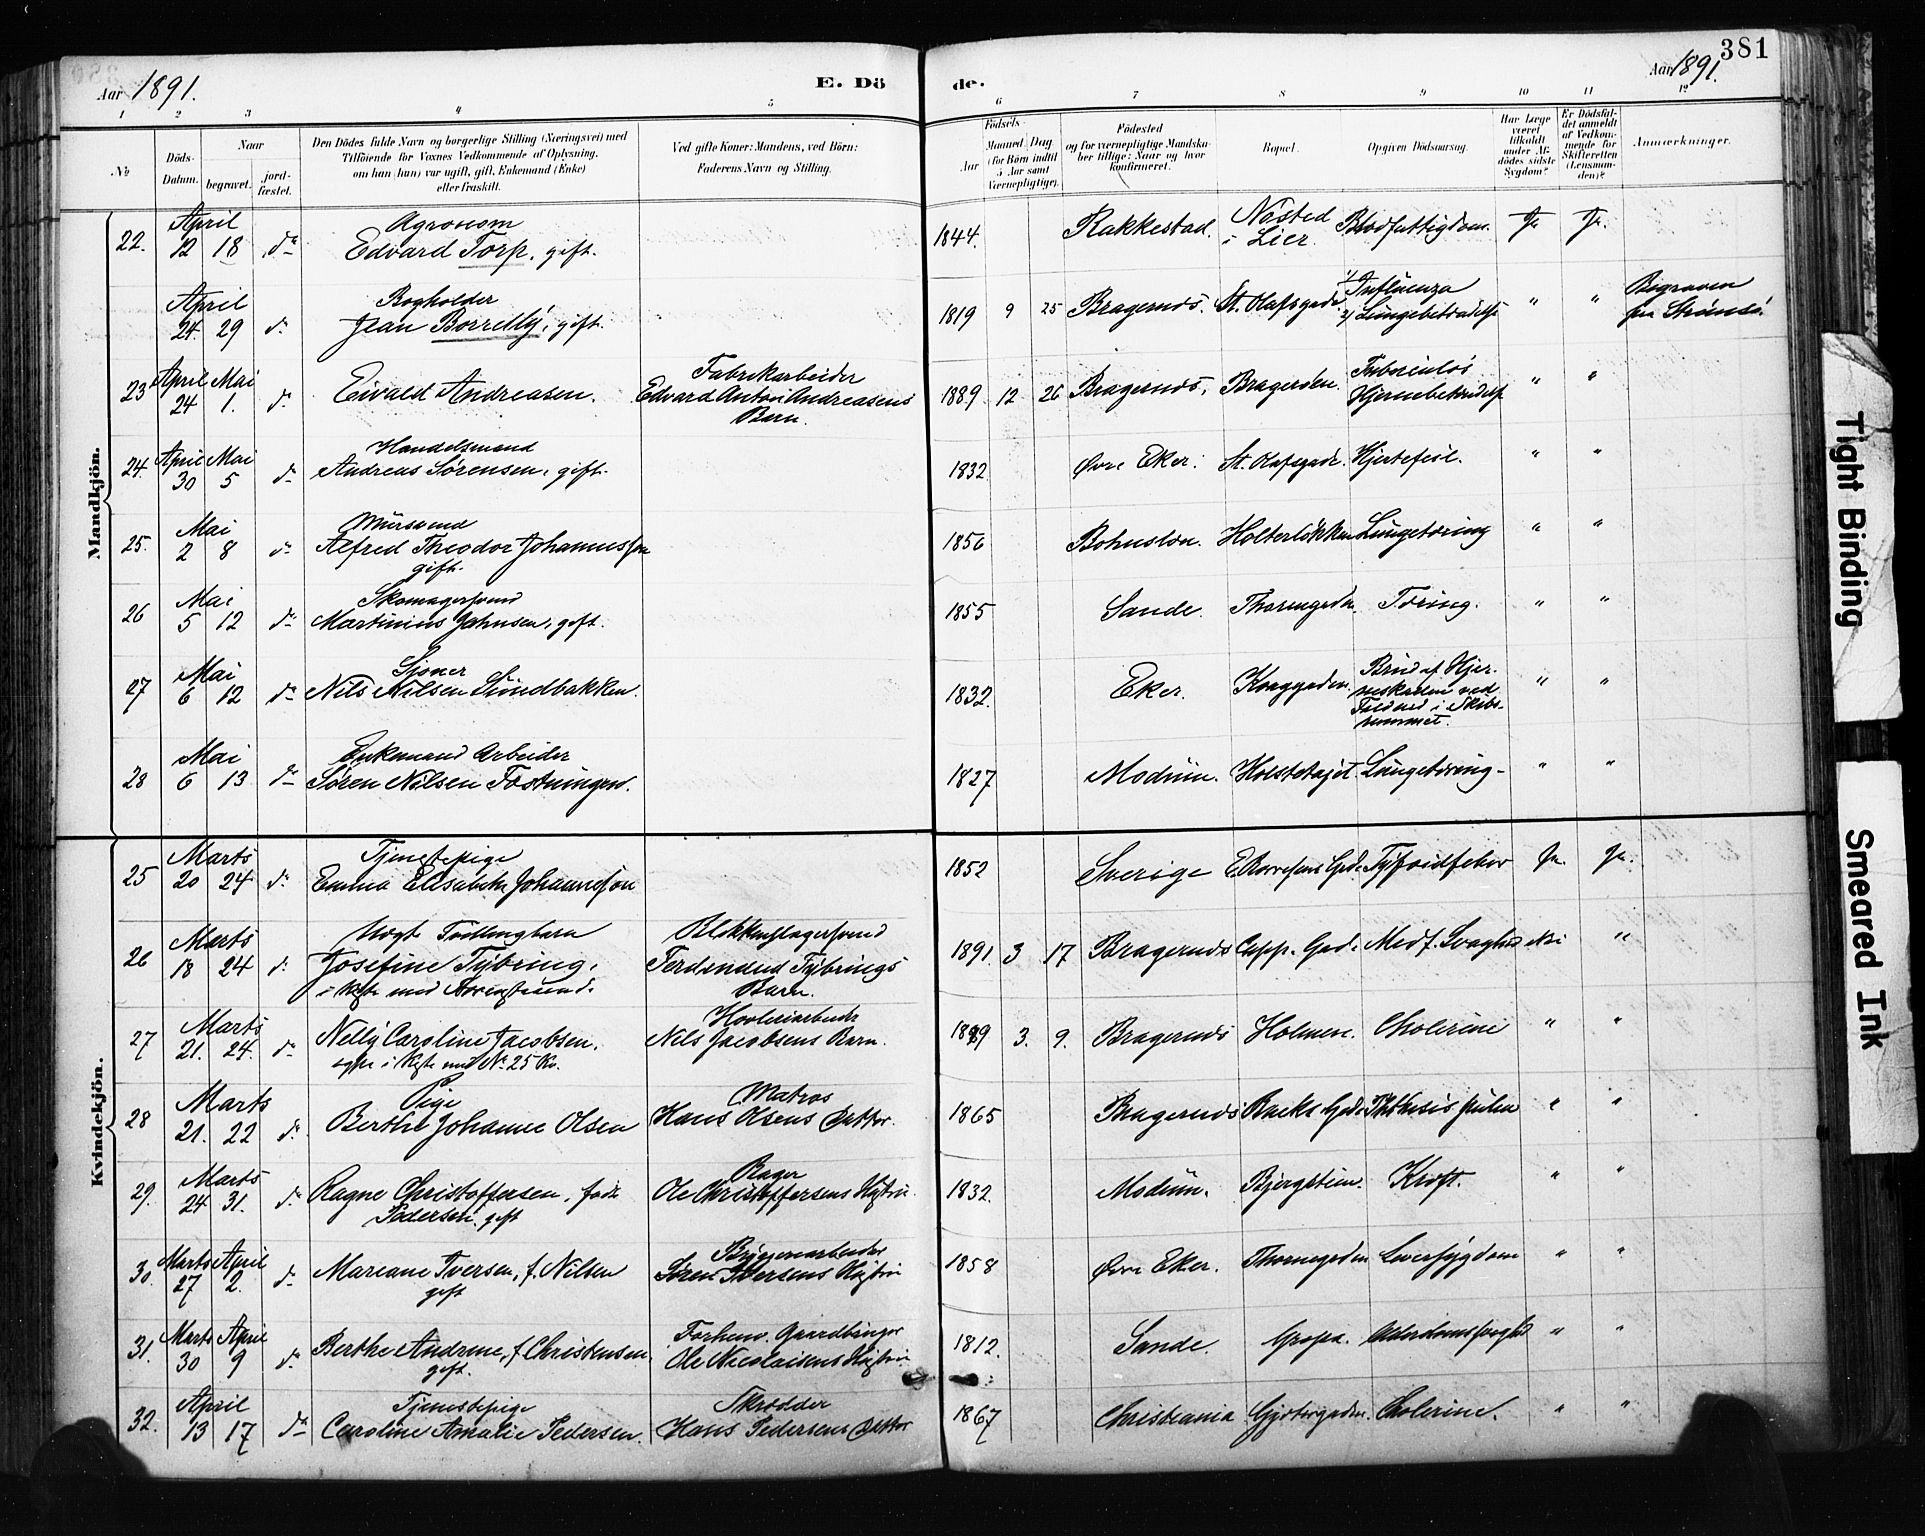 381
Aar 1891.
E. Dö de.
Aar 1891.
1 2 3 4 5 6 7 8 9 10 11 12
No
Döds-Datum.
Naar
begravet.
jord-fæstet.
Den Dödes fulde Navn og borgerlige Stilling (Næringsvei) med
Tilföiende for Voxnes Vedkommende af Oplysning,
om han (hun) var ugift, gift, Enkemand (Enke)
eller fraskilt.
Ved gifte Koner: Mandens, ved Börn:
Faderens Navn og Stilling.
Födsels-
Aar
Maaned Dag
(for Börn indtil
5 Aar samt
Værnepligtige).
Födested
og for værnepligtige Mandska-
ber tillige: Naar og hvor
konfirmeret.
Bopæl.
Opgiven Dödsaarsag.
Har Læge
været
tilkaldt
under Af-
dödes sidste
Sygdom?
Er Dödsfal-
det anmeldt
af Vedkom-
mende for
Skifteretten
(Lensman-
den)?
Anmærkninger.
Mandkjön.
22. April 12 18 do Agronom
Edvard Torp, gift. 1844. Rakkestad. Nøsted
i Lier. Blodfattigdom. Ja Ja.
April 24. 29 do Bogholder
Jean Borrelly, gift. 1819 9 25 Bragernes. St. Olafsgade. 1/ Influenza
2/ Lungebetændelse " " Begraven
paa Strømsø.
23 April 24 Mai 1. do Eivald Andreasen. Fabrikarbeider
Edvard Anton Andreasens
Barn. 1889. 12 26 Bragernes, Bragerøen. Tuberculøs
Hjernebetændelse " "
24. April 30 Mai 5 do Handelsmand
Andreas Sørensen, gift. 1832 Øvre Eker. St. Olafsgade. Hjertefeil. " "
25. Mai 2 8 do Mursvend
Alfred Theodor Johannesson
gift. 1856 Bohuslen. Holterløkken Lungetæring " "
26 Mai 5 12 do Skomagersvend
Martinius Jahnsen, gift. 1855 Sande. Thornegaden. Tæring. " "
27 Mai 6 12 do Sjouer
Nils Nilsen Lundbakken. 1832. Eker. Knoggaden Brud af Hjer-
neskallen ved
Fald ned i Skibs-
rummet. " "
28 Mai 6 13 do Enkemand Arbeider
Søren Nilsen Fostningen. 1827 Modum. Holstetajet Lungetæring - " "
Kvindekjön.
25 Marts 20 24 do Tjenestepige
Emma Elisabeth Johannesson 1852 Sverige Tyfoidfeber Ja. Ja.
26 Marts 18 24 do Uægte Tvillingbarn
Josefine Tybring,
i Kiste med Blikkenslagersvend
Ferdinand Tybrings
Barn. 1891. 3 17 Bragernes Capp. Gad. Medf. Svaghed nei "
27 Marts 21. 24. do Nelly Caroline Jacobsen.
ogsaa i Kiste med No 25 Kv. Høvleriarbeider
Nils Jacobsens Barn. 1889 3. 9. Bragernes Holmen. Cholerine " "
28 Marts 21. 22 do Pige
Berthe Johanne Olsen Matros
Hans Olsens Datter. 1865 Bragernes Backe Gad. Phthisis pulm " "
29. Marts 24 31. do Ragne Christoffersen, født
Pedersen gift Bager
Ole Christoffersens Hustru. 1832. Modum. Bjergstien. Kræft. " "
30. Marts 27 April 2. do Mariane Iversen, f. Nilsen
gift Bryggeriarbeider
Søren Iversens Hustru 1858 Øvre Eker. Thornegaden Leversygdom " "
31. Marts 30 April 9 do Berthe Andrine, f. Christensen.
gift. Forhenv. Gaardbruger
Ole Nicolaisens Hustru 1812. Sande. Alderdomssvaghed " "
32. April 13 17 do Tjenestepige
Caroline Amalie Pedersen. Skrædder
Hans Pedersens Datter 1867 Christiania Gjetergaden. Cholerine. " "
Tight Binding
Smeared Ink